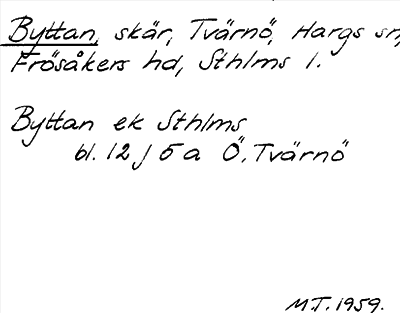 Byttan, skär, Tvärnö, Hargs sn,
Frösåkers hd, Sthlms l.
Byttan ek Sthlms
bl. 12 j 5 a Ö. Tvärnö
M.T. 1959.